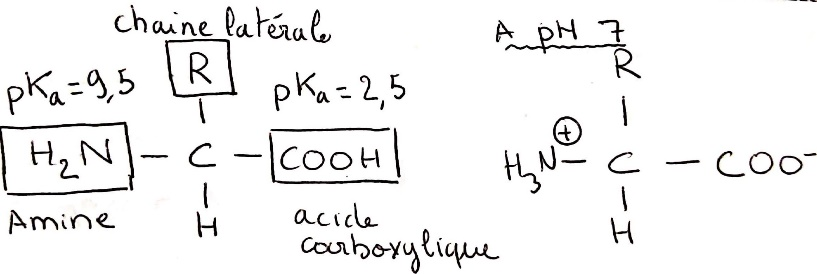 chaine latérale
R
pKa=9,5
pKa=2,5
H2N – C – COOH
H
Amine
acide
carboxylique
A pH 7
R
H3N⊕ – C – COO-
H